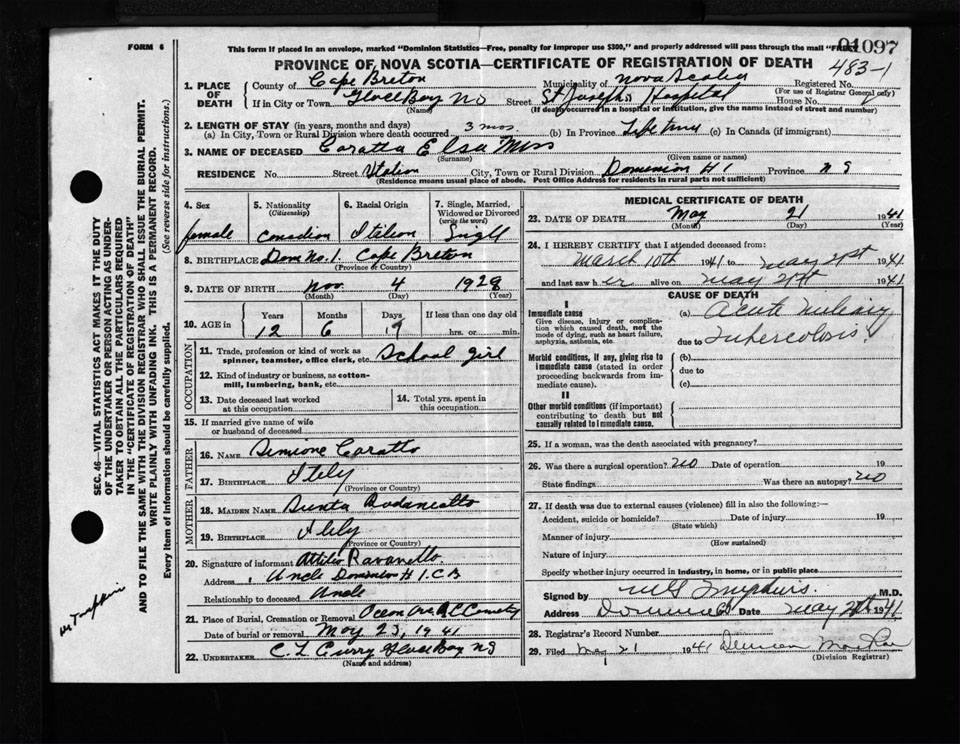 FORM 6
This form if placed in an envelope, marked "Dominion Statistics—Free, penalty for improper use $300," and properly addressed will pass through the mail "FREE"
01097
PROVINCE OF NOVA SCOTIA—CERTIFICATE OF REGISTRATION OF DEATH
483-1
1. PLACE OF DEATH
County of Cape Breton Municipality of Nova Scotia Registered No.
(For use of Registrar General only)
If in City or Town Glace Bay NS Street St Josephs Hospital House No.
(Name) (If death occurred in a hospital or institution, give the name instead of street and number)
2. LENGTH OF STAY (in years, months and days)
(a) In City, Town or Rural Division where death occurred 3 mos. (b) In Province Life time (c) In Canada (if immigrant)
3. NAME OF DECEASED Caratto Elsa Miss
(Surname) (Given name or names)
RESIDENCE No. Street City, Town or Rural Division Dominion # 1 Province N S
(Residence means usual place of abode. Post Office Address for residents in rural parts not sufficient)
4. Sex
female
5. Nationality
(Citizenship)
Canadian
6. Racial Origin
Italian
7. Single, Married, Widowed or Divorced
(write the word)
Single
8. BIRTHPLACE Dom No. 1. Cape Breton
(Province or Country)
9. DATE OF BIRTH Nov. 4 1928
(Month) (Day) (Year)
10. AGE in
Years Months Days If less than one day old
12 6 19 hrs. or min.
OCCUPATION
11. Trade, profession or kind of work as spinner, teamster, office clerk, etc. School girl
12. Kind of industry or business, as cotton-mill, lumbering, bank, etc.
13. Date deceased last worked at this occupation
14. Total yrs. spent in this occupation
15. If married give name of wife or husband of deceased
FATHER
16. NAME Simione Caratto
17. BIRTHPLACE Italy
(Province or Country)
MOTHER
18. MAIDEN NAME
19. BIRTHPLACE Italy
(Province or Country)
20. Signature of informant Attilio Ravanello
Address Dominion # 1. C B
Relationship to deceased Uncle
21. Place of Burial, Cremation or Removal Ocean Ave R C Cemetry
Date of burial or removal May 23, 1941
22. UNDERTAKER C. L. Curry Glace Bay NS
(Name and address)
MEDICAL CERTIFICATE OF DEATH
23. DATE OF DEATH May 21 1941
(Month) (Day) (Year)
24. I HEREBY CERTIFY that I attended deceased from:
March 10th 1941 to May 21st 1941
and last saw her alive on May 21st 1941
CAUSE OF DEATH
I
Immediate cause
Give disease, injury or complication which caused death, not the mode of dying, such as heart failure, asphyxia, asthenia, etc.
(a) Acute Miliary
due to Tuberculosis.
Morbid conditions, if any, giving rise to immediate cause (stated in order proceeding backwards from immediate cause).
(b)
due to
(c)
II
Other morbid conditions (if important) contributing to death but not causally related to immediate cause.
25. If a woman, was the death associated with pregnancy?
26. Was there a surgical operation? no Date of operation 19
State findings Was there an autopsy? no
27. If death was due to external causes (violence) fill in also the following:—
Accident, suicide or homicide? Date of injury 19
(State which)
Manner of injury
(How sustained)
Nature of injury
Specify whether injury occurred in industry, in home, or in public place
Signed by M.D.
Address Dominion Date May 1941
28. Registrar's Record Number
29. Filed May 21 1941
(Division Registrar)
SEC. 46—VITAL STATISTICS ACT MAKES IT THE DUTY
OF THE UNDERTAKER OR PERSON ACTING AS UNDER-
TAKER TO OBTAIN ALL THE PARTICULARS REQUIRED
IN THE "CERTIFICATE OF REGISTRATION OF DEATH"
AND TO FILE THE SAME WITH THE DIVISION REGISTRAR WHO SHALL ISSUE THE BURIAL PERMIT.
WRITE PLAINLY WITH UNFADING INK. THIS IS A PERMANENT RECORD.
Every item of information should be carefully supplied. (See reverse side for instructions.)